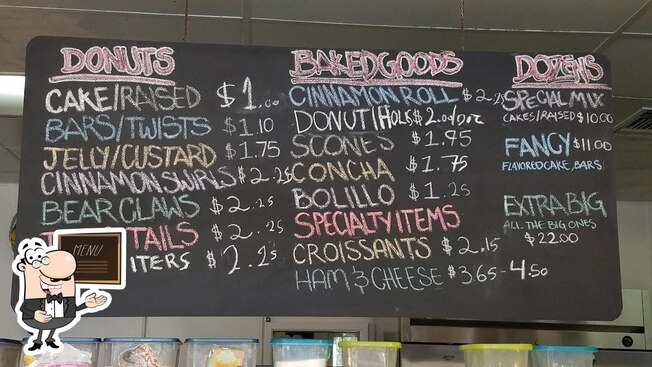 DONUTS
CAKE/RAISED $1.00
BARS/TWISTS $1.10
JELLY/CUSTARD $1.75
CINNAMON SWIRLS $2.25
BEAR CLAWS $2.25
TAILS $2.25
ITERS $2.25
MENU
BAKED GOODS
CINNAMON ROLL $2.25
DONUT/HOLES $2.00/DOZ
SCONES $1.95
CONCHA $1.75
BOLILLO $1.25
SPECIALTY ITEMS
CROISSANTS $2.15
HAM & CHEESE $3.65-4.50
DOZENS
SPECIAL MIX
CAKES/RAISED $10.00
FANCY $11.00
FLAVORED CAKE, BARS/
EXTRA BIG
ALL THE BIG ONES
$22.00